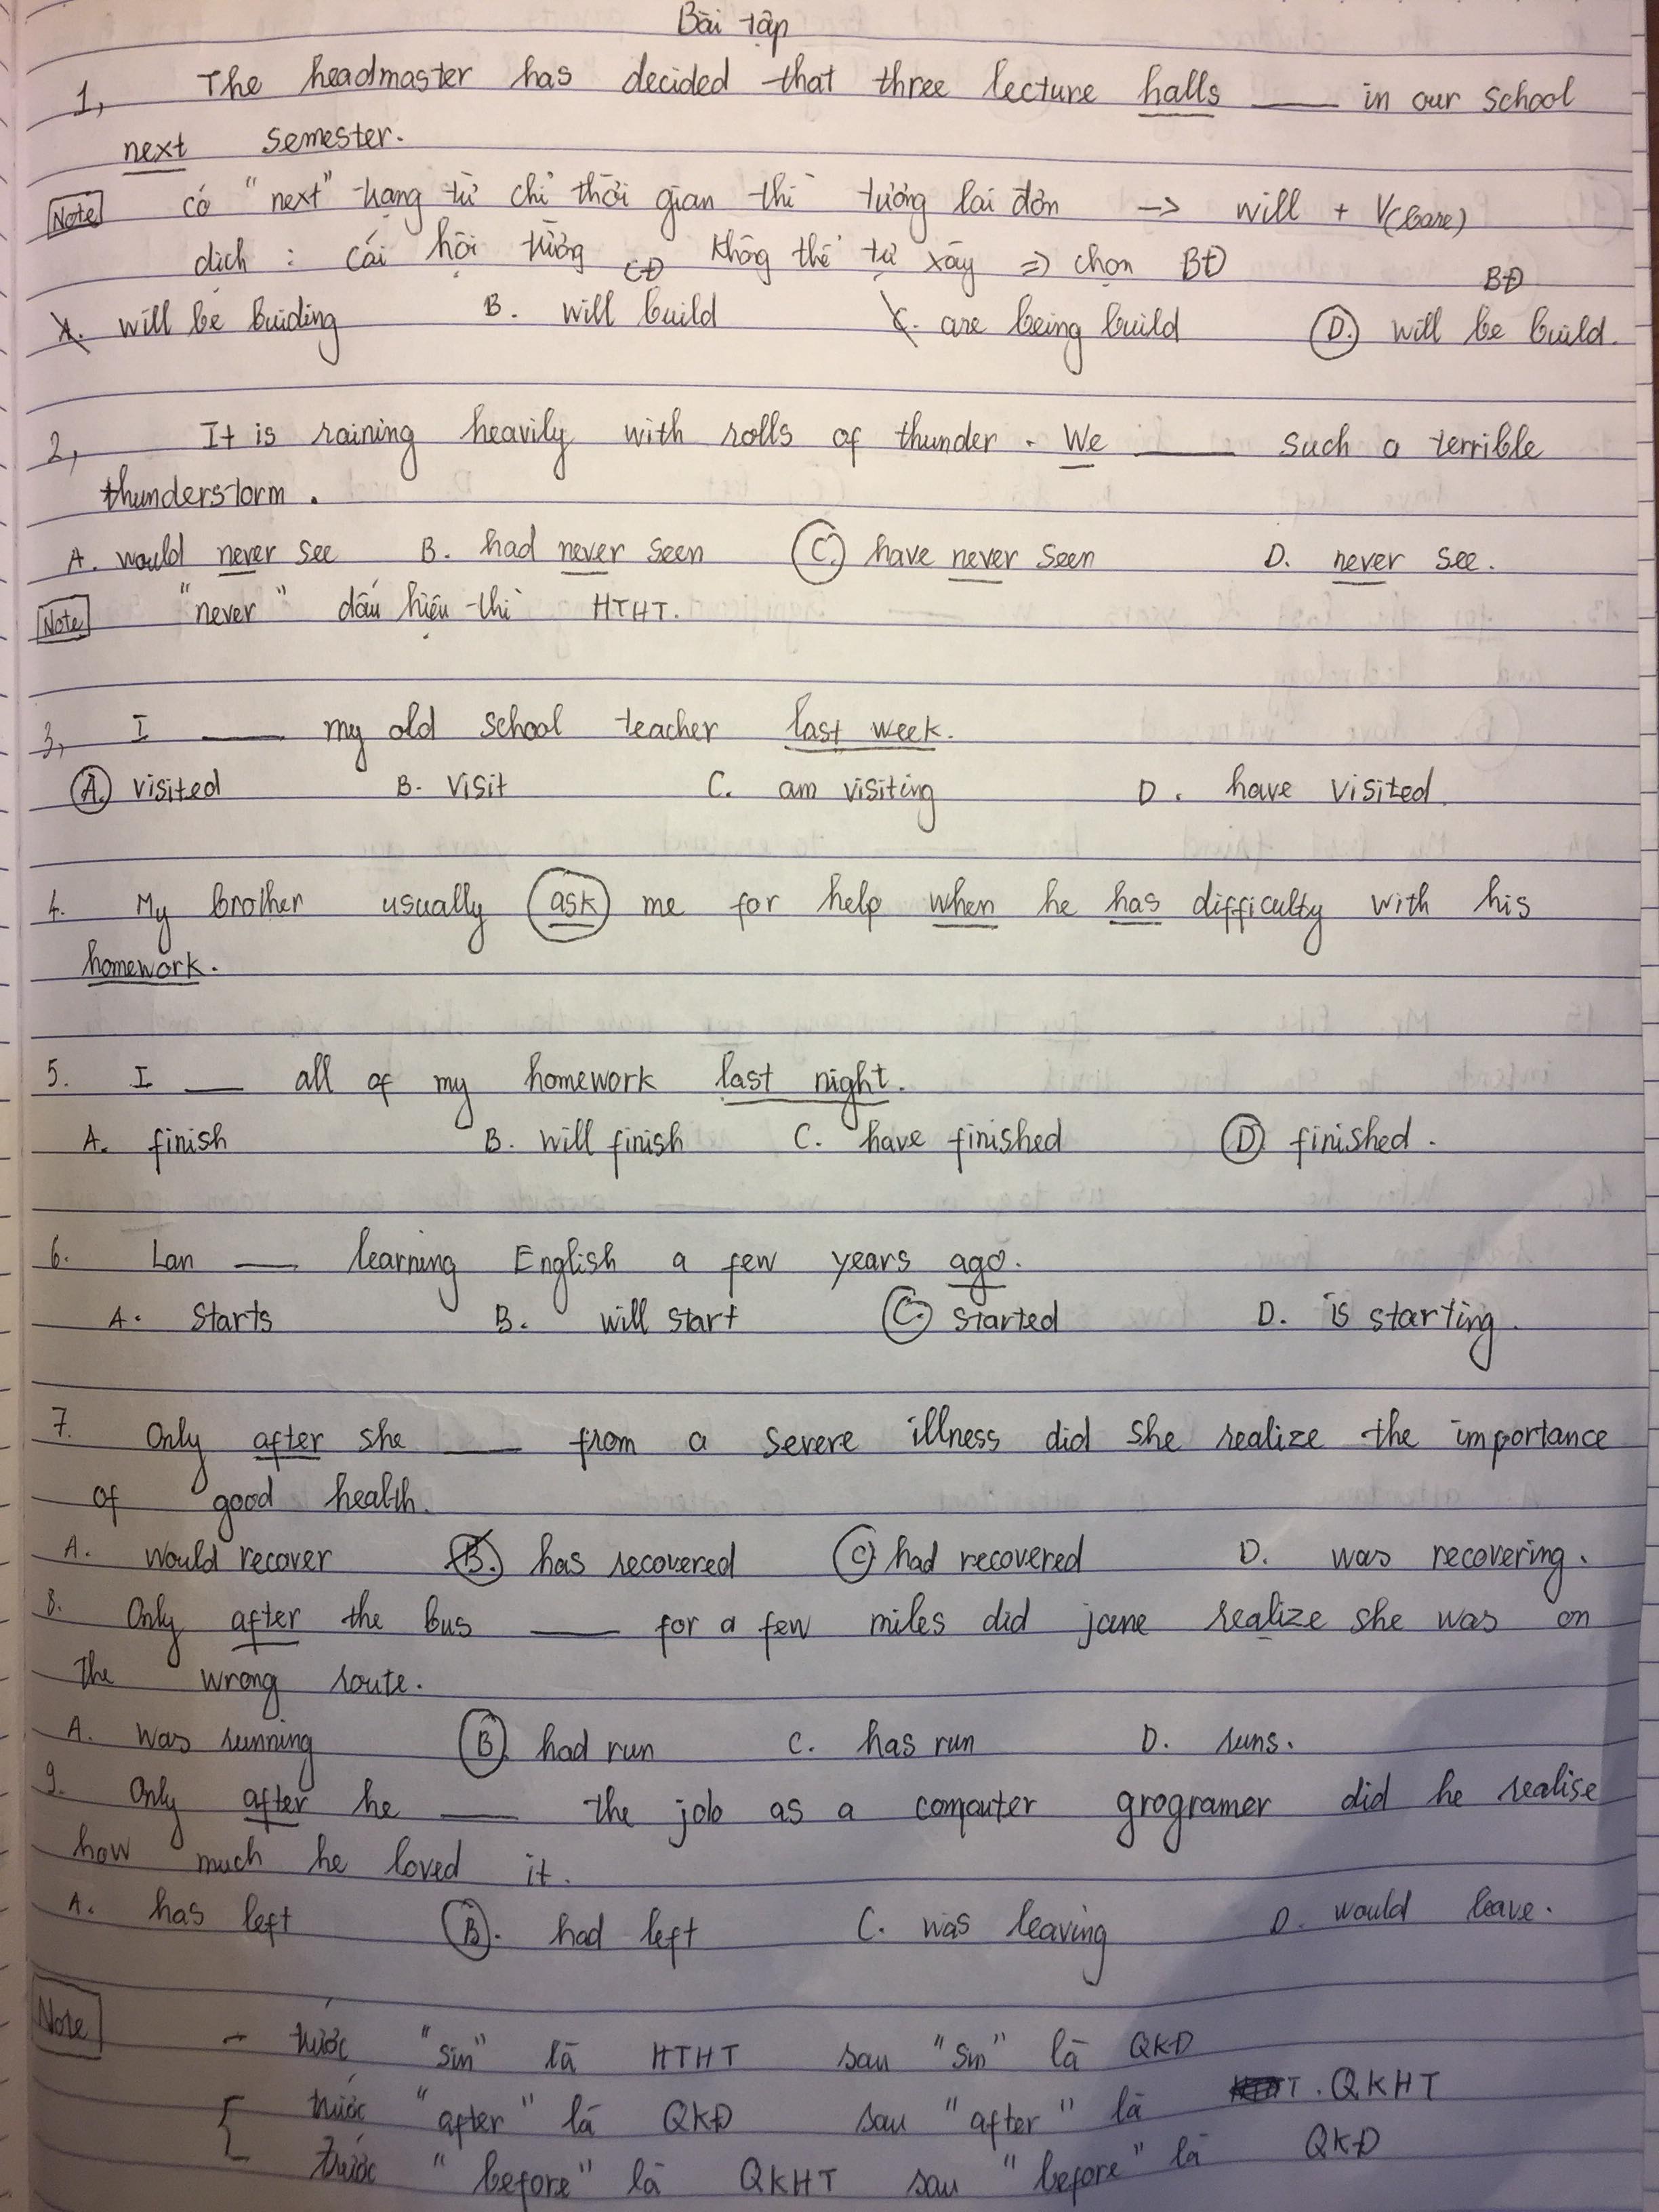 Bài tập
1, The headmaster has decided that three lecture halls ___ in our school
next semester.
Note có "next" trạng từ chỉ thời gian thì tương lai đơn -> will + V(bare)
dịch : cái hội trường không thể tự xây => chọn BĐ
CĐ BĐ
A. will be buiding B. will build C. are being build D. will be build.
2, It is raining heavily with rolls of thunder. We ___ such a terrible
thunderstorm.
A. would never see B. had never seen C. have never seen D. never see.
Note "never" dấu hiệu thì HTHT.
3, I ___ my old school teacher last week.
A. visited B. visit C. am visiting D. have visited.
4. My brother usually ask me for help when he has difficulty with his
homework.
5. I ___ all of my homework last night.
A. finish B. will finish C. have finished D finished.
6. Lan ___ learning English a few years ago.
A. Starts B. will start C. started D. is starting.
7. Only after she ___ from a severe illness did she realize the importance
of good health.
A. would recover B. has recovered C had recovered D. was recovering.
8. Only after the bus ___ for a few miles did jane realize she was on
The wrong route.
A. was running B had run C. has run D. runs.
9. Only after he ___ the job as a computer grogramer did he realise
how much he loved it.
A. has left B. had left C. was leaving D. would leave.
Note - trước "sin" là HTHT sau "sin" là QKĐ
trước "after" là QKĐ sau "after" là QKHT
trước "before" là QKHT sau "before" là QKĐ